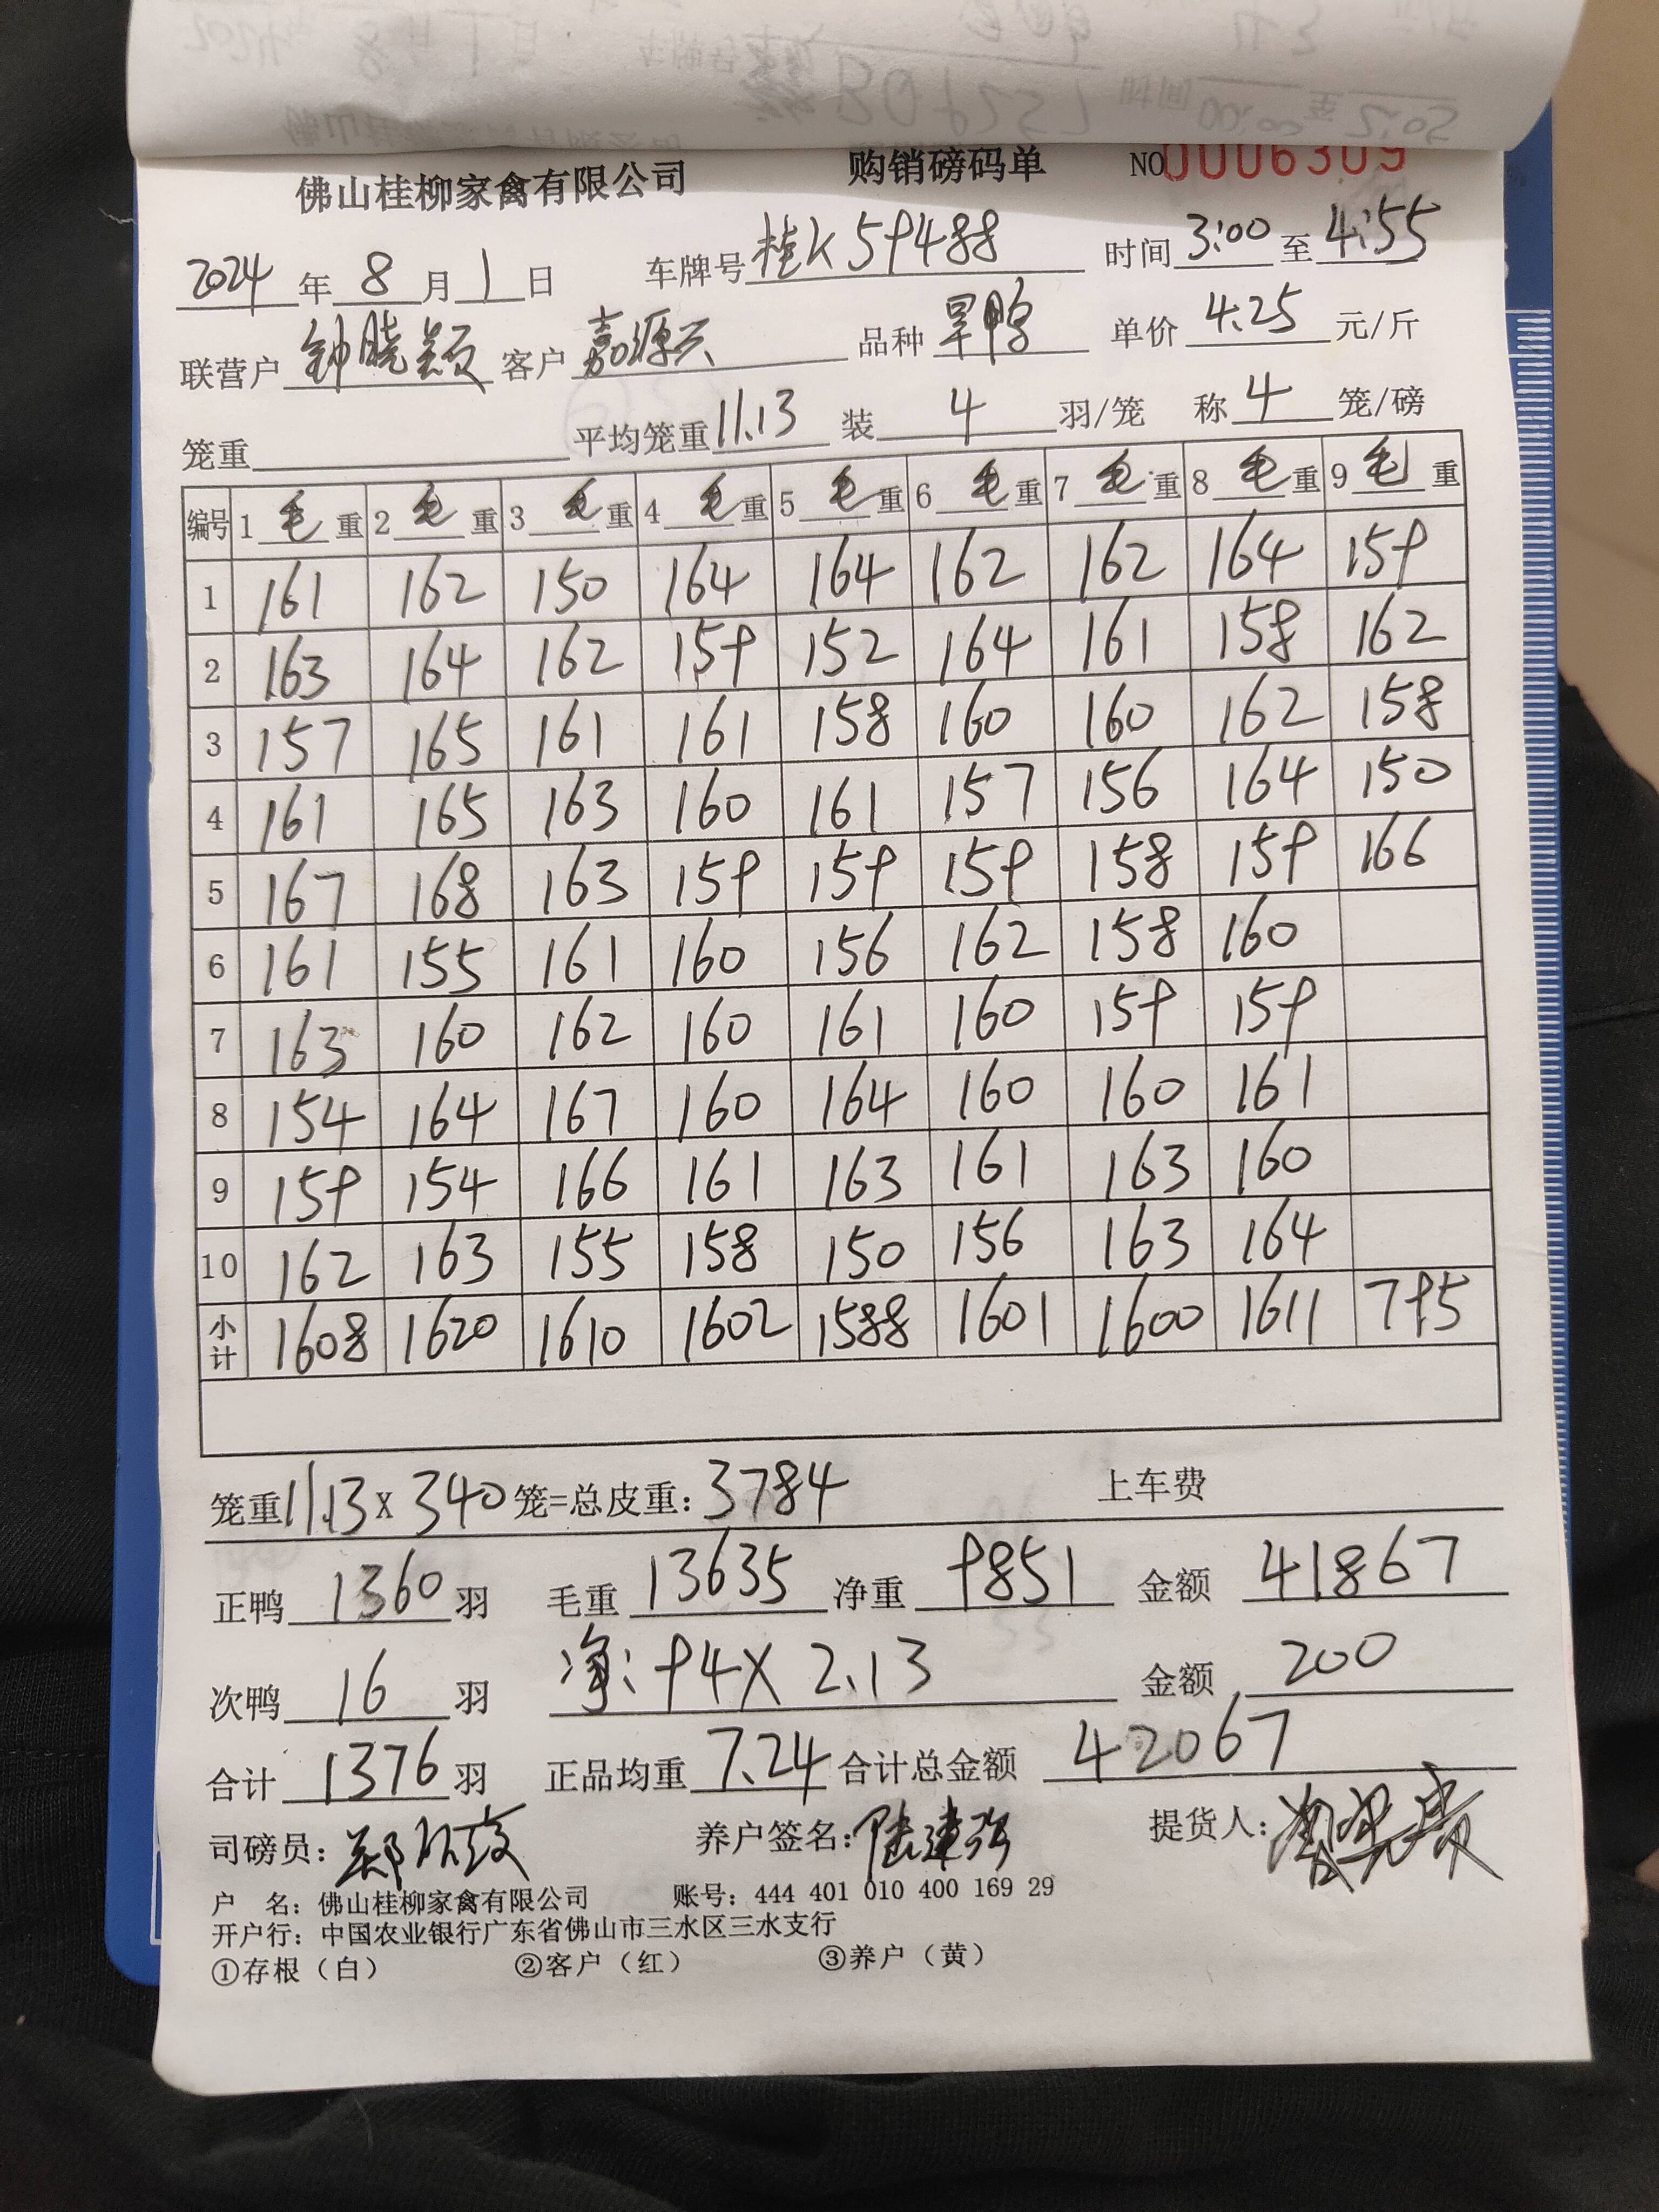 佛山桂柳家禽有限公司 购销磅码单 NO0006309
2024年8月1日 车牌号桂K59488 时间3:00至4:55
联营户钟晓颖 客户嘉源兴 品种旱鸭 单价4.25元/斤
笼重 平均笼重11.13 装4羽/笼 称4笼/磅
编号 1毛重 2毛重 3毛重 4毛重 5毛重 6毛重 7毛重 8毛重 9毛重
1 161 162 150 164 164 162 162 164 159
2 163 164 162 159 152 164 161 158 162
3 157 165 161 161 158 160 160 162 158
4 161 165 163 160 161 157 156 164 150
5 167 168 163 159 159 159 158 159 166
6 161 155 161 160 156 162 158 160
7 163 160 162 160 161 160 159 159
8 154 164 167 160 164 160 160 161
9 159 154 166 161 163 161 163 160
10 162 163 155 158 150 156 163 164
小计 1608 1620 1610 1602 1588 1601 1600 1611 795
笼重11.13x340笼=总皮重:3784 上车费
正鸭1360羽 毛重13635净重9851 金额41867
次鸭16羽 净:94X2.13 金额200
合计1376羽 正品均重7.24合计总金额42067
司磅员: 养户签名:陆建强 提货人:
户 名:佛山桂柳家禽有限公司 账号:444 401 010 400 169 29
开户行:中国农业银行广东省佛山市三水区三水支行
①存根(白) ②客户(红) ③养户(黄)